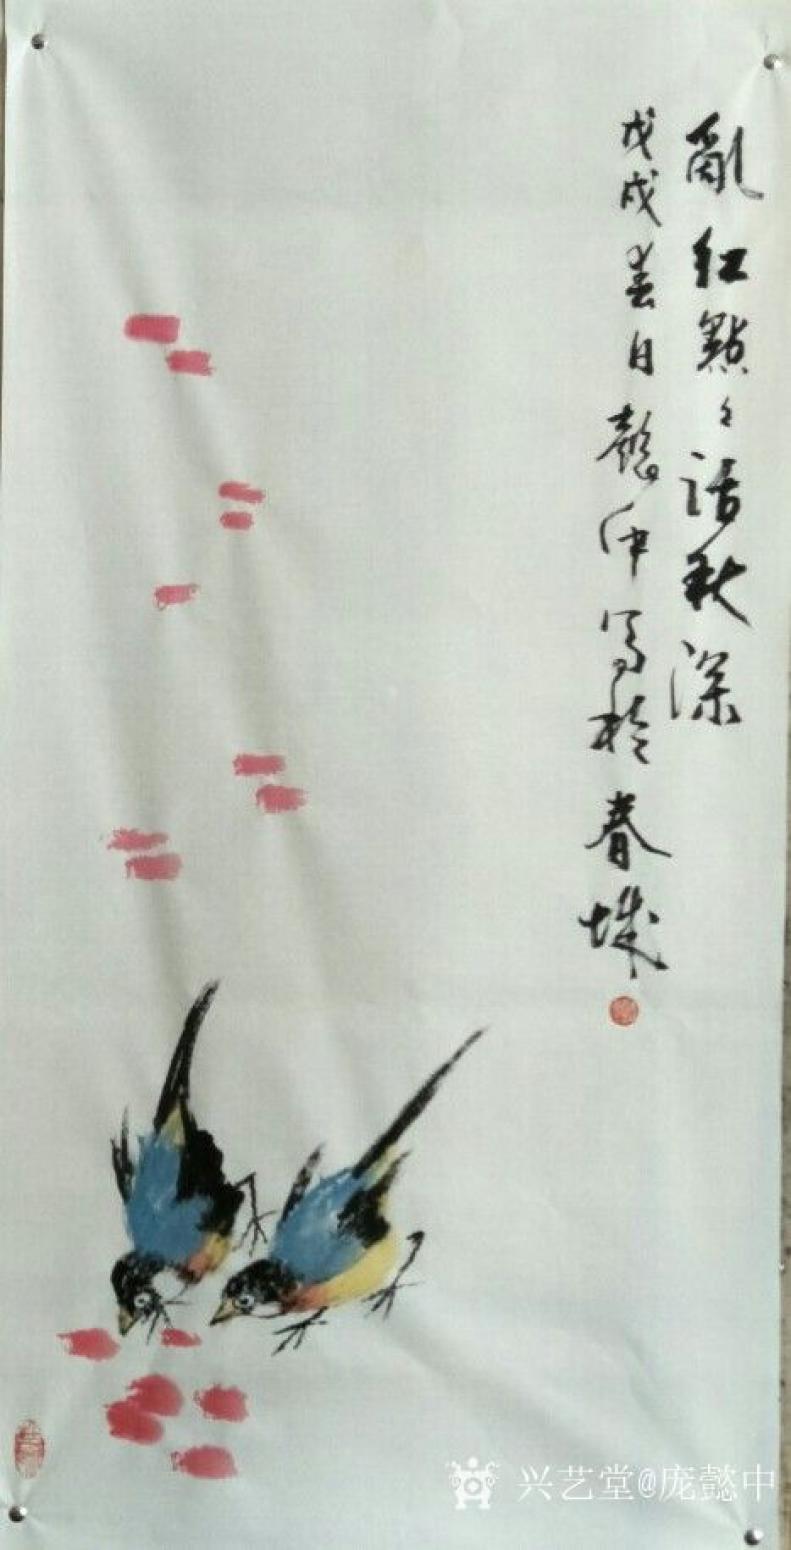 亂紅點々話秋深
戊戌春日懿中写於春城
兴艺堂@庞懿中